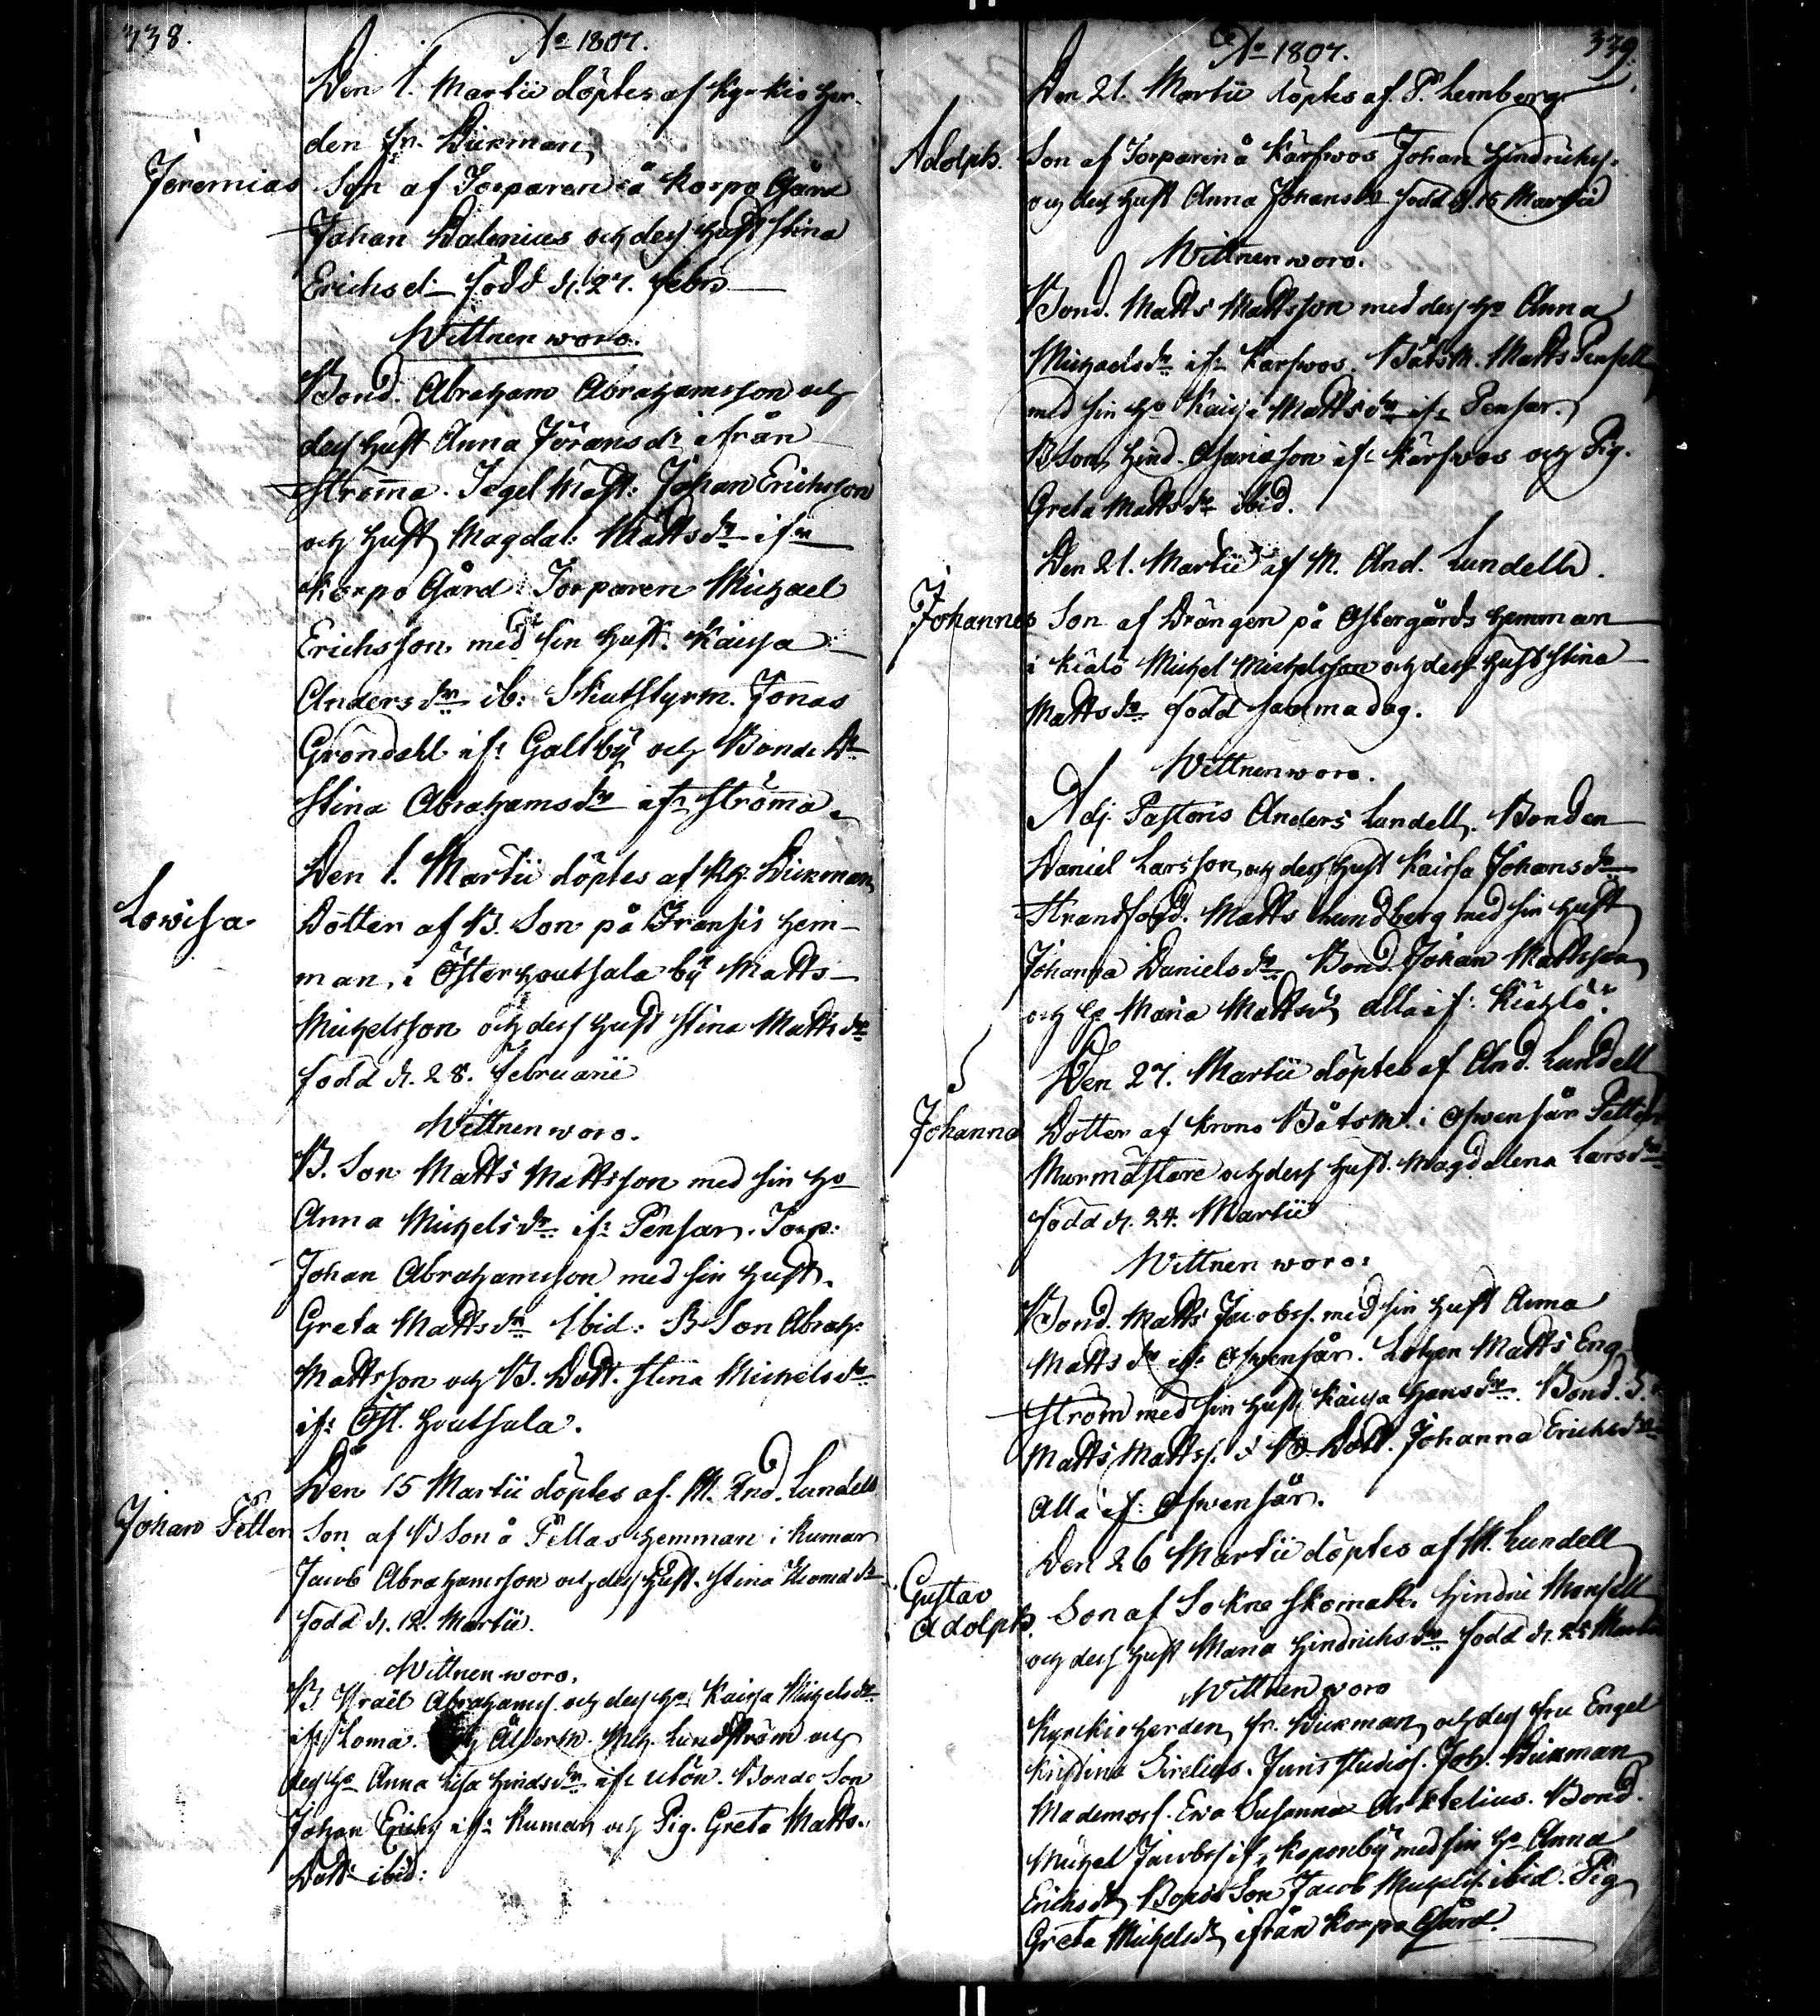 338.
Ao 1807.
Den 1. Martii döptes af Kyrkio her-
den hr. Dickman
Jeremias
Son af Torparen å Korpo Gård
Johan Dalenius och des hust Stina
Erichs dr född d. 27. febr
Wittnen woro.
Bond. Abraham Abrahamsson och
des hust Anna Jörans dr ifrån
Ströma. Tegel Mäst: Johan Erichsson
och hust Magdal: Matts dr ifrn
Korpo Gård Torparen Michael
Erichsson med sin hust. Kaisa
Anders dr ib: Skutstyrm. Jonas
Gröndahl ifr Galtby och Bonde Dr
Stina Abrahams dr ifr Ströma.
Den 1. Martii döptes af Kh. Dickman
Lovisa
Dotter af B. Son på Fransis hem-
man, i Österhoutsala by Matts
Michelsson och des hust Stina Matts dr
född d. 28. Februarii
Wittnen woro.
B. Son Matts Mattsson med sin ho
Anna Michels dr ifr Pensar. Torp:
Johan Abrahamsson med sin hust.
Greta Matts dr Ibid: B Son Abrah:
Mattsson och B. Dott. Stina Michels dr
ifr Öst. Houtsala.
Den 15 Martii döptes af M. And. Lundell
Johan Petter
Son af B Son å Pellas hemman i Rumar
Jacob Abrahamsson och des hust. Stina Thomas dr
född d. 12. Martii.
Wittnen woro.
B. Israël Abrahams. och des ho Kaisa Michels dr
ifr Loma. Ålderm. Mich. Lundström och
des ho Anna Lisa Hinds dr ifr Utön. Bonde Son
Johan Erichs ifr Rumar och Pig. Greta Matts.
Dott: ibid:
Ao 1807.
339.
Den 21. Martii döptes af P. Lemberg
Adolph.
Son af Torparen å Kärfwos Johan Hindrichs.
och des hust Anna Johans dr född d. 15 Martii
Wittnen woro.
Bond. Matts Mattsson med des ho Anna
Michaels dr ifr Karfwos. Båtsm. Matts Pensell
med sin ho Kaisa Matts dr ifr Pensar.
B Son Hind. son ifr Kärfwos och Pig.
Greta Matts dr ibid.
Den 21. Martii af M. And. Lundell.
Johannes
Son af Drängen på Östergårds hemman
i Kiälö Michel Michelsson och des hust Stina
Matts dr född samma dag.
Wittnen woro.
Adj. Pastoris Anders Lundell. Bonden
Daniel Larsson och des hust Kaisa Johans dr
Strandfogd. Matts Lundberg med sin hust
Johanna Daniels dr Bond. Johan Mattsson
och ho Maria Matts dr alla ifr Kiählö.
Den 27. Martii döptes af And. Lundell
Johanna
Dotter af Krono Båtsm. i Ofwensår Petter
Murmästare och des hust. Magdalena Lars dr
född d. 24. Martii
Wittnen woro:
Bond. Matts Jacobs. med sin hust Anna
Matts dr ifr Ofwensår. Lotzen Matts Eng-
ström med sin hust Kaisa Hans dr. Bond. S.
Matts Matts. & B. Dott. Johanna Erichs dr
Alla ifr Ofwensår.
Den 26 Martii döptes af M. Lundell
Gustav
Adolph.
Son af Sokne Skomak. Hindric Mansell
och des hust Maria Hindrichs dr född d. 25 Martii
Wittnen woro
Kyrckioherden hr. Dickman och des fru Engel
Kristina Sirelius. Juris Studios. Joh. Dickman
Mademois. Eva Susanna Arktelius. Bond.
Michel Jacobs ifr Koponby med sin ho Anna
Erichs dr Bonde Son Jacob Michels. ibid. Pig
Greta Michels dr ifrån Korpo Gård.